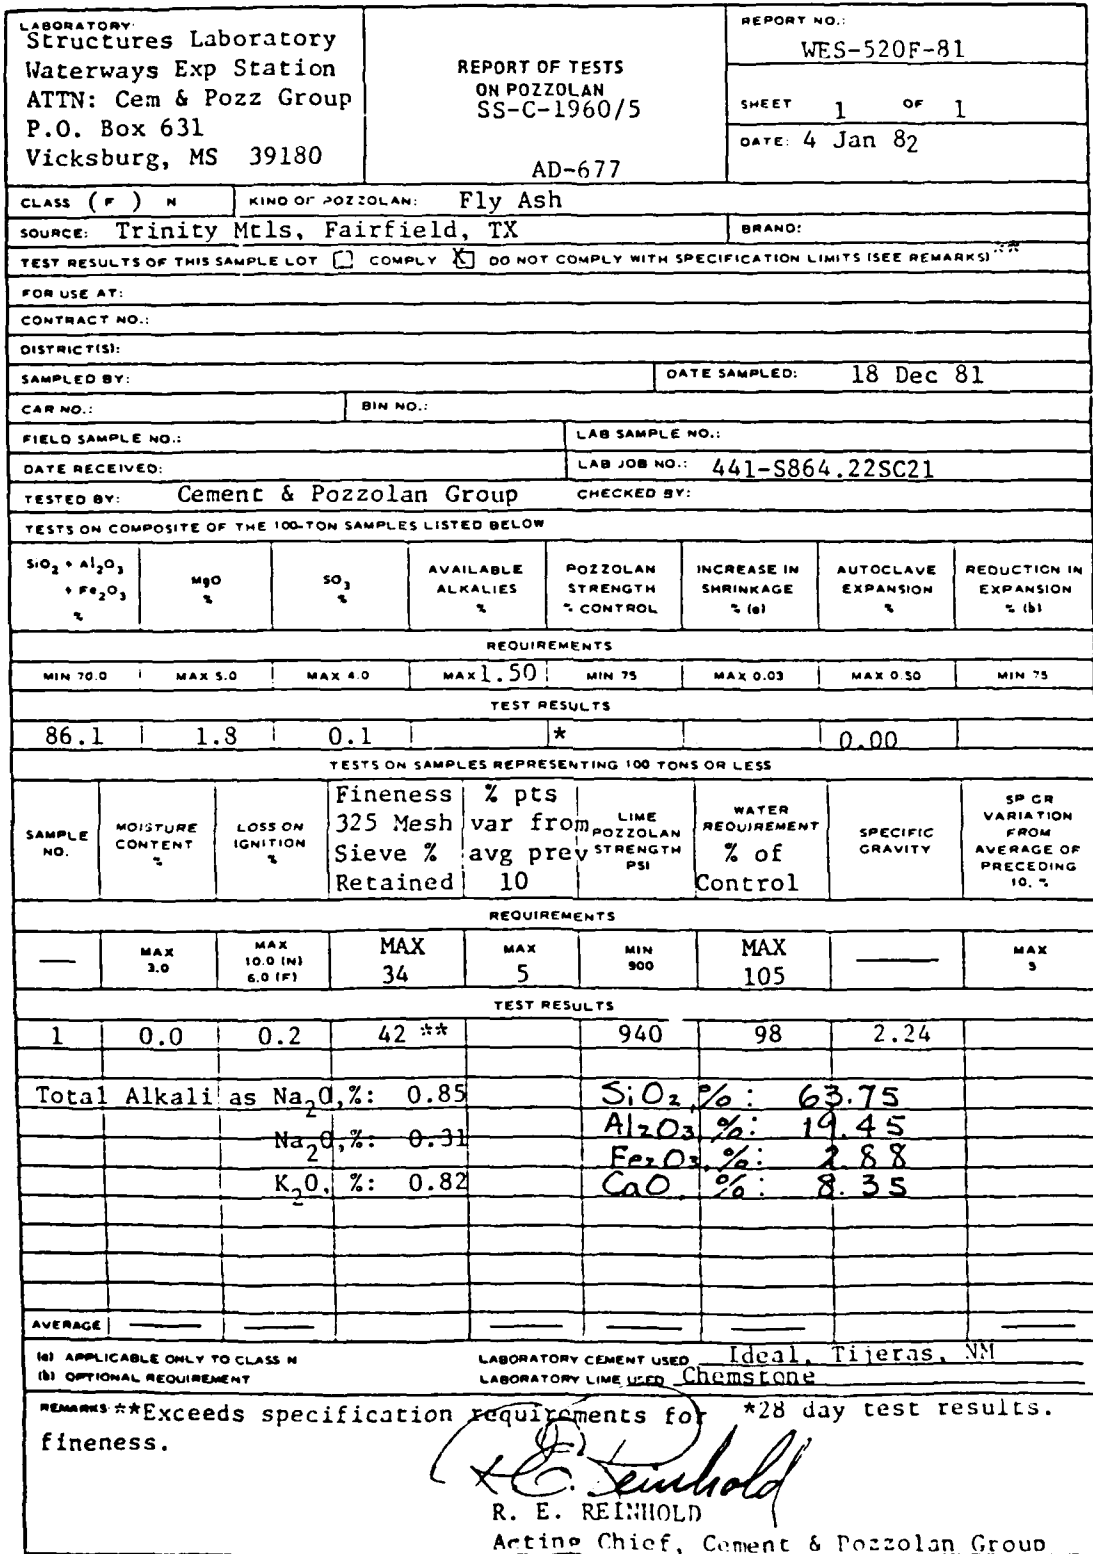 LABORATORY:
Structures Laboratory
Waterways Exp Station
ATTN: Cem & Pozz Group
P.O. Box 631
Vicksburg, MS 39180
REPORT OF TESTS
ON POZZOLAN
SS-C-1960/5
AD-677
REPORT NO.:
WES-520F-81
SHEET 1 OF 1
DATE: 4 Jan 82
CLASS (F) N KIND OF POZZOLAN: Fly Ash
SOURCE: Trinity Mtls, Fairfield, TX BRAND:
TEST RESULTS OF THIS SAMPLE LOT [ ] COMPLY [X] DO NOT COMPLY WITH SPECIFICATION LIMITS (SEE REMARKS)**
FOR USE AT:
CONTRACT NO.:
DISTRICT(S):
SAMPLED BY: DATE SAMPLED: 18 Dec 81
CAR NO.: BIN NO.:
FIELD SAMPLE NO.: LAB SAMPLE NO.:
DATE RECEIVED: LAB JOB NO.: 441-S864.22SC21
TESTED BY: Cement & Pozzolan Group CHECKED BY:
TESTS ON COMPOSITE OF THE 100-TON SAMPLES LISTED BELOW
SiO2 + Al2O3
+ Fe2O3
%
MgO
%
SO3
%
AVAILABLE
ALKALIES
%
POZZOLAN
STRENGTH
% CONTROL
INCREASE IN
SHRINKAGE
% (a)
AUTOCLAVE
EXPANSION
%
REDUCTION IN
EXPANSION
% (b)
REQUIREMENTS
MIN 70.0 MAX 5.0 MAX 4.0 MAX 1.50 MIN 75 MAX 0.03 MAX 0.50 MIN 75
TEST RESULTS
86.1 1.8 0.1 * 0.00
TESTS ON SAMPLES REPRESENTING 100 TONS OR LESS
SAMPLE
NO.
MOISTURE
CONTENT
%
LOSS ON
IGNITION
%
Fineness
325 Mesh
Sieve %
Retained
% pts
var from
avg prev
10
LIME
POZZOLAN
STRENGTH
PSI
WATER
REQUIREMENT
% of
Control
SPECIFIC
GRAVITY
SP GR
VARIATION
FROM
AVERAGE OF
PRECEDING
10, %
REQUIREMENTS
MAX
3.0
MAX
10.0 (N)
6.0 (F)
MAX
34
MAX
5
MIN
900
MAX
105
MAX
5
TEST RESULTS
1 0.0 0.2 42 ** 940 98 2.24
Total Alkali as Na2O,%: 0.85 SiO2,%: 63.75
Na2O,%: 0.31 Al2O3 %: 19.45
Fe2O3,%: 2.88
K2O, %: 0.82 CaO %: 8.35
AVERAGE
(a) APPLICABLE ONLY TO CLASS N LABORATORY CEMENT USED Ideal, Tijeras, NM
(b) OPTIONAL REQUIREMENT LABORATORY LIME USED Chemstone
REMARKS: **Exceeds specification requirements for *28 day test results.
fineness.
R. E. Reinhold
R. E. REINHOLD
Acting Chief, Cement & Pozzolan Group